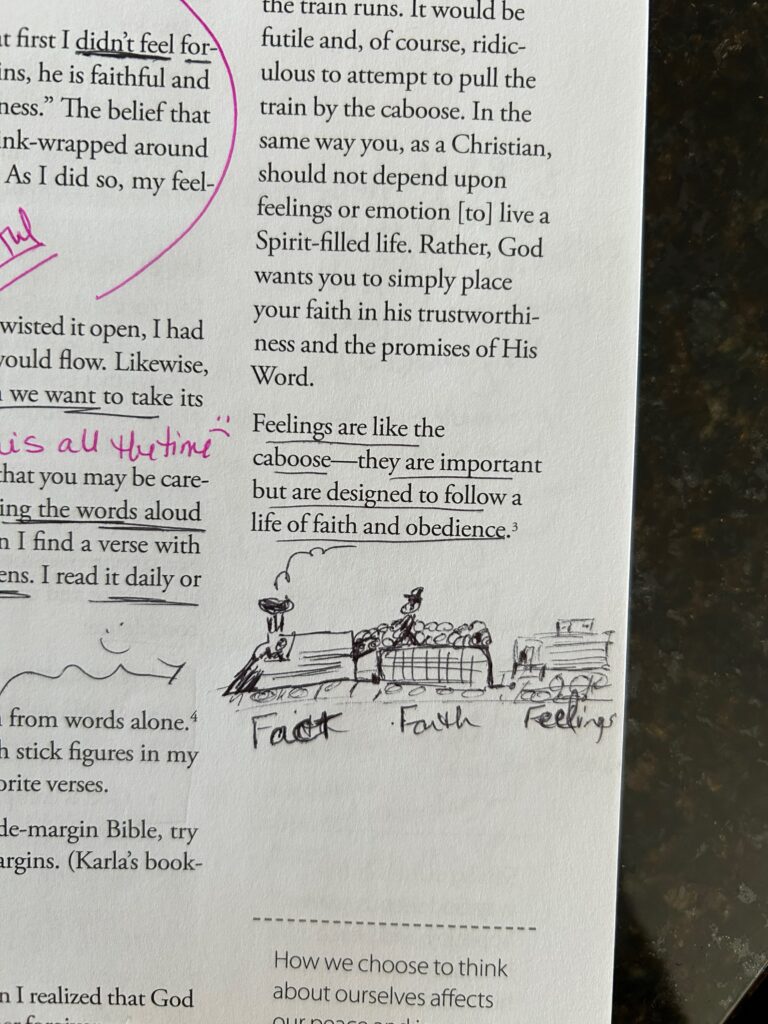 t first I didn't feel for-
ins, he is faithful and
ness.” The belief that
ink-wrapped around
As I did so, my feel-
wisted it open, I had
would flow. Likewise,
we want to take its
is all the time
that you may be care-
ing the words aloud
n I find a verse with
ens. I read it daily or
from words alone.⁴
h stick figures in my
orite verses.
de-margin Bible, try
argins. (Karla's book-
n I realized that God
the train runs. It would be
futile and, of course, ridic-
ulous to attempt to pull the
train by the caboose. In the
same way you, as a Christian,
should not depend upon
feelings or emotion [to] live a
Spirit-filled life. Rather, God
wants you to simply place
your faith in his trustworthi-
ness and the promises of His
Word.
Feelings are like the
caboose—they are important
but are designed to follow a
life of faith and obedience.³
Fact Faith Feelings
How we choose to think
about ourselves affects
our peace and